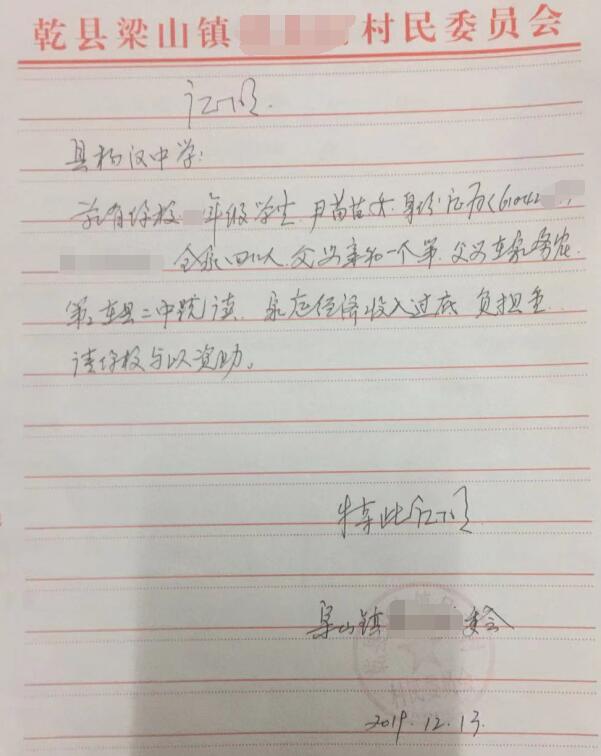 乾县梁山镇 村民委员会
证明
县杨汉中学:
兹有你校 年级学生 尹苗苗 女 身份证历(61042
全家四口人 父父亲和一个弟 父父在家务农
弟在县二中就读 家庭经济收入过底 负担重
请你校与以资助。
特此证明
梁山镇 委会
2019.12.13